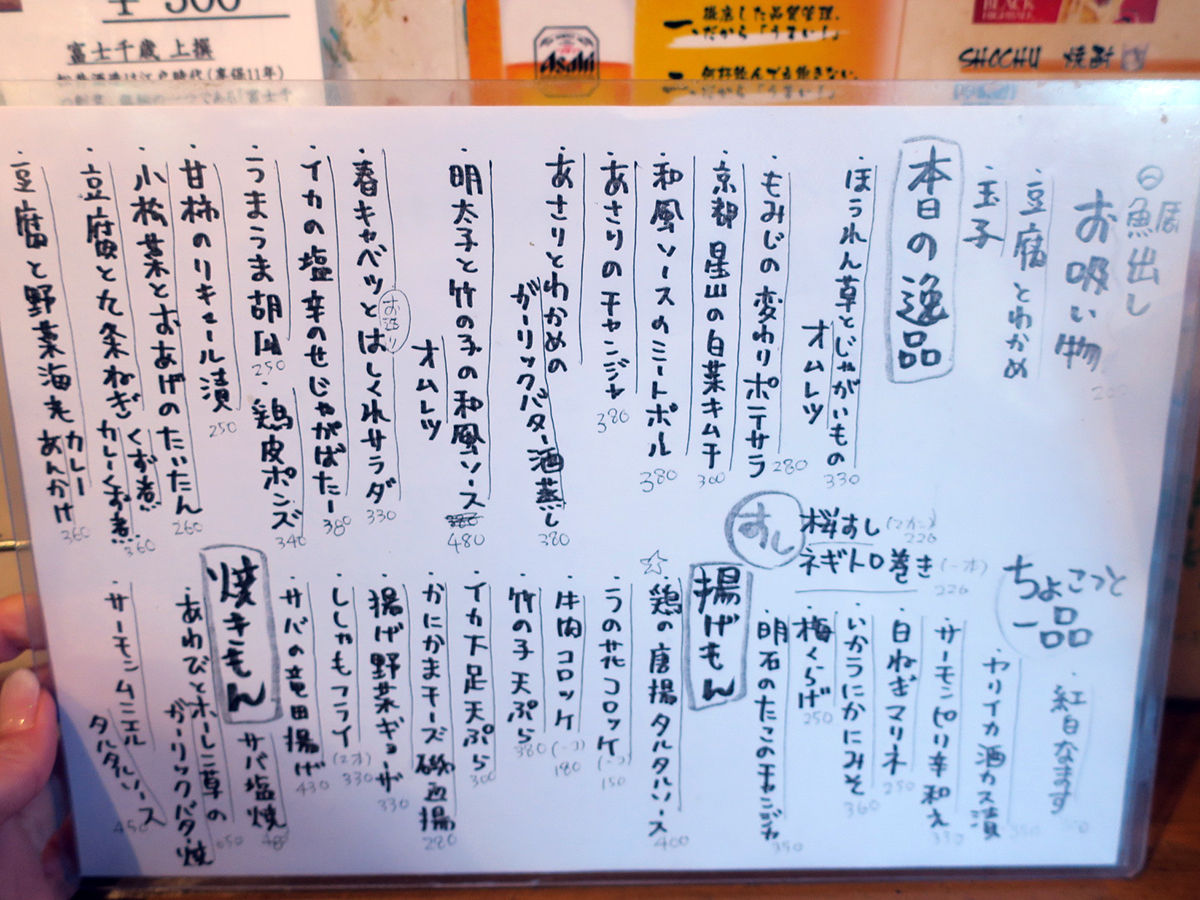 ¥300
富士千歳 上撰
松井酒造は江戸時代(享保11年)
Asahi
徹底した品質管理。
だから「うまい!」
一 何杯飲んでも飽きない。
だから「うまい!」
BLACK
HIGHBALL
SHOCHU 焼酎
魚出し
お吸い物
豆腐とわかめ
玉子
本日の逸品
・ほうれん草とじゃがいもの
オムレツ
330
・もみじの変わりポテサラ
280
・京都 星山の白菜キムチ
300
・和風ソースのミートボール
380
・あさりのチャンジャ
380
・あさりとわかめの
ガーリックバター酒蒸し
380
・明太子と竹の子の和風ソース
オムレツ
480
・春キャベツとはしくれサラダ
お造り
330
・イカの塩辛のせじゃがばたー
380
・うまうま胡瓜
250
・鶏皮ポンズ
340
・甘柿のリキュール漬
250
・小松菜とおあげのたいたん
260
・豆腐と九条ねぎカレーくず煮
360
・豆腐と野菜海老カレーあんかけ
360
すし
桜すし(2カン)
220
ネギトロ巻き(一本)
220
ちょこっと
一品
・紅白なます
・ヤリイカ酒カス漬
350
・サーモンピリ辛和え
330
・白ねぎマリネ
250
・いかうにかにみそ
360
・梅くらげ
250
・明石のたこのチャンジャ
350
揚げもん
☆
・鶏の唐揚タルタルソース
400
・うの花コロッケ
(一コ)
150
・牛肉コロッケ
(一コ)
180
・竹の子天ぷら
380
・イカ下足天ぷら
300
・かにかまチーズ磯辺揚
280
・揚げ野菜ギョーザ
330
・ししゃもフライ
(2本)
330
・サバの竜田揚げ
430
焼きもん
・サバ塩焼
480
・あわびとホーレン草の
ガーリックバター焼
650
・サーモンムニエル
タルタルソース
450